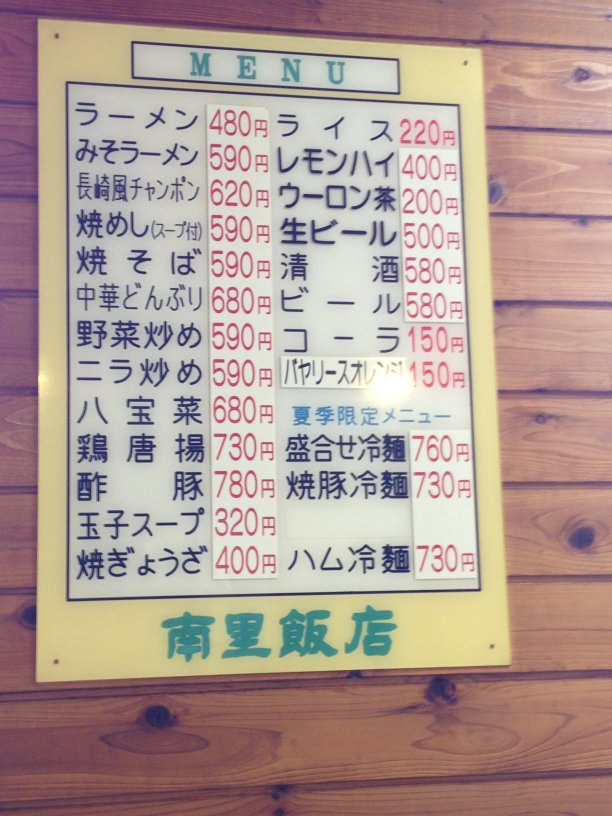 MENU
ラーメン 480円
みそラーメン 590円
長崎風チャンポン 620円
焼めし(スープ付) 590円
焼そば 590円
中華どんぶり 680円
野菜炒め 590円
ニラ炒め 590円
八宝菜 680円
鶏唐揚 730円
酢豚 780円
玉子スープ 320円
焼ぎょうざ 400円
ライス 220円
レモンハイ 400円
ウーロン茶 200円
生ビール 500円
清酒 580円
ビール 580円
コーラ 150円
バヤリースオレンジ 150円
夏季限定メニュー
盛合せ冷麺 760円
焼豚冷麺 730円
ハム冷麺 730円
南里飯店